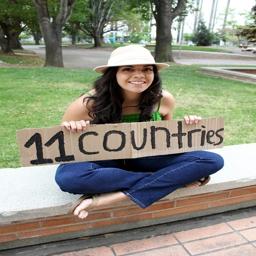 11 countries